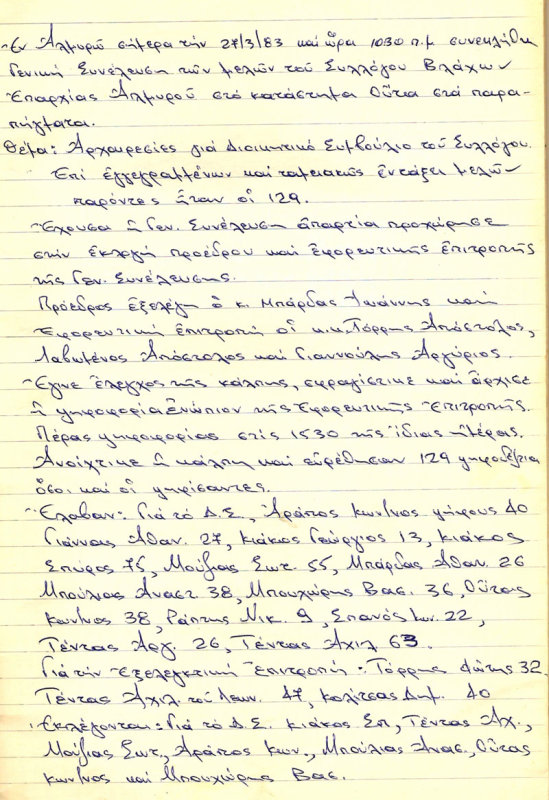 Ἐν Ἁλμυρῷ σήμερα τὴν 27/3/83 καὶ ὥρα 1030 π.μ συνεκλήθη
Γενική Συνέλευση τῶν μελῶν τοῦ Συλλόγου Βλάχων
Ἐπαρχίας Ἁλμυροῦ στό κατάστημα Οὔτα στά παρα-
πήγματα.
Θέμα: Ἀρχαιρεσίες γιά Διοικητικό Συμβούλιο τοῦ Συλλόγου.
Ἐπί ἐγγεγραμμένων καί ταμειακῶς ἐντάξει μελῶν
παρόντες ἦταν οἱ 129.
Ἔχουσα ἡ Γεν. Συνέλευση ἀπαρτία προχώρησε
στήν ἐκλογή προέδρου καί ἐφορευτικῆς ἐπιτροπῆς
τῆς Γεν. Συνέλευσης.
Πρόεδρος ἐξελέγη ὁ κ. Μπάρδας Ἰωάννης καί
Ἐφορευτική ἐπιτροπή οἱ κ.κ. Τόρρης Ἀπόστολος,
Λαβωμένος Ἀπόστολος καί Γιαννούλης Ἀργύριος.
Ἔγινε ἔλεγχος τῆς κάλπης, σφραγίστικε καί ἄρχισε
ἡ ψηφοφορία ἐνώπιον τῆς Ἐφορευτικῆς Ἐπιτροπῆς.
Πέρας ψηφοφορίας στίς 1530 τῆς ἴδιας ἡμέρας.
Ἀνοίχτικε ἡ κάλπη καί εὑρέθησαν 129 ψηφοδέλτια
ὅσοι καί οἱ ψηφίσαντες.
Ἔλαβαν: Γιά τό Δ.Σ., Ἀράπος Κων/νος ψήφους 40
Γιάννας Ἀθαν. 27, Κιάκος Γεώργιος 13, Κιάκος
Σπύρος 75, Μούζιας Σωτ. 55, Μπάρδας Ἀθαν. 26
Μπούλιας Ἀναστ. 38, Μπουχώρης Βασ. 36, Οὔτας
Κων/νος 38, Ράπτης Νικ. 9, Σπανός Ιων. 22,
Τέντας Ἀργ. 26, Τέντας Ἀχιλ 63.
Γιά τήν Ἐξελεγκτική Ἐπιτροπή: Τόρρης Φώτης 32
Τέντας Ἀχιλ. τοῦ Λεων. 47, Κολίτσας Δημ. 40
Ἐκλέγονται: Γιά τό Δ.Σ. Κιάκος Σπ., Τέντας Ἀχ.,
Μούζιας Σωτ., Ἀράπος Κων., Μπούλιας Ἀνασ., Οὔτας
Κων/νος καί Μπουχώρης Βας.